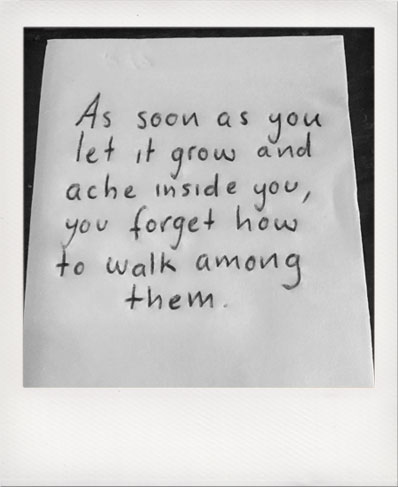 As soon as you
let it grow and
ache inside you,
you forget how
to walk among
them.